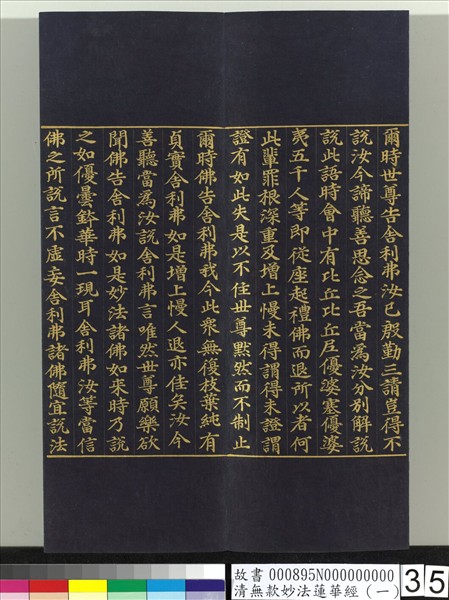 爾時世尊告舍利弗汝已殷勤三請豈得不
說汝今諦聽善思念之吾當為汝分別解說
說此語時會中有比丘比丘尼優婆塞優婆
夷五千人等即從座起禮佛而退所以者何
此輩罪根深重及增上慢未得謂得未證謂
證有如此失是以不住世尊默然而不制止
爾時佛告舍利弗我今此眾無復枝葉純有
貞實舍利弗如是增上慢人退亦佳矣汝今
善聽當為汝說舍利弗言唯然世尊願樂欲
聞佛告舍利弗如是妙法諸佛如來時乃說
之如優曇鉢華時一現耳舍利弗汝等當信
佛之所說言不虛妄舍利弗諸佛隨宜說法
故書 000895N000000000
清無款妙法蓮華經(一)
35